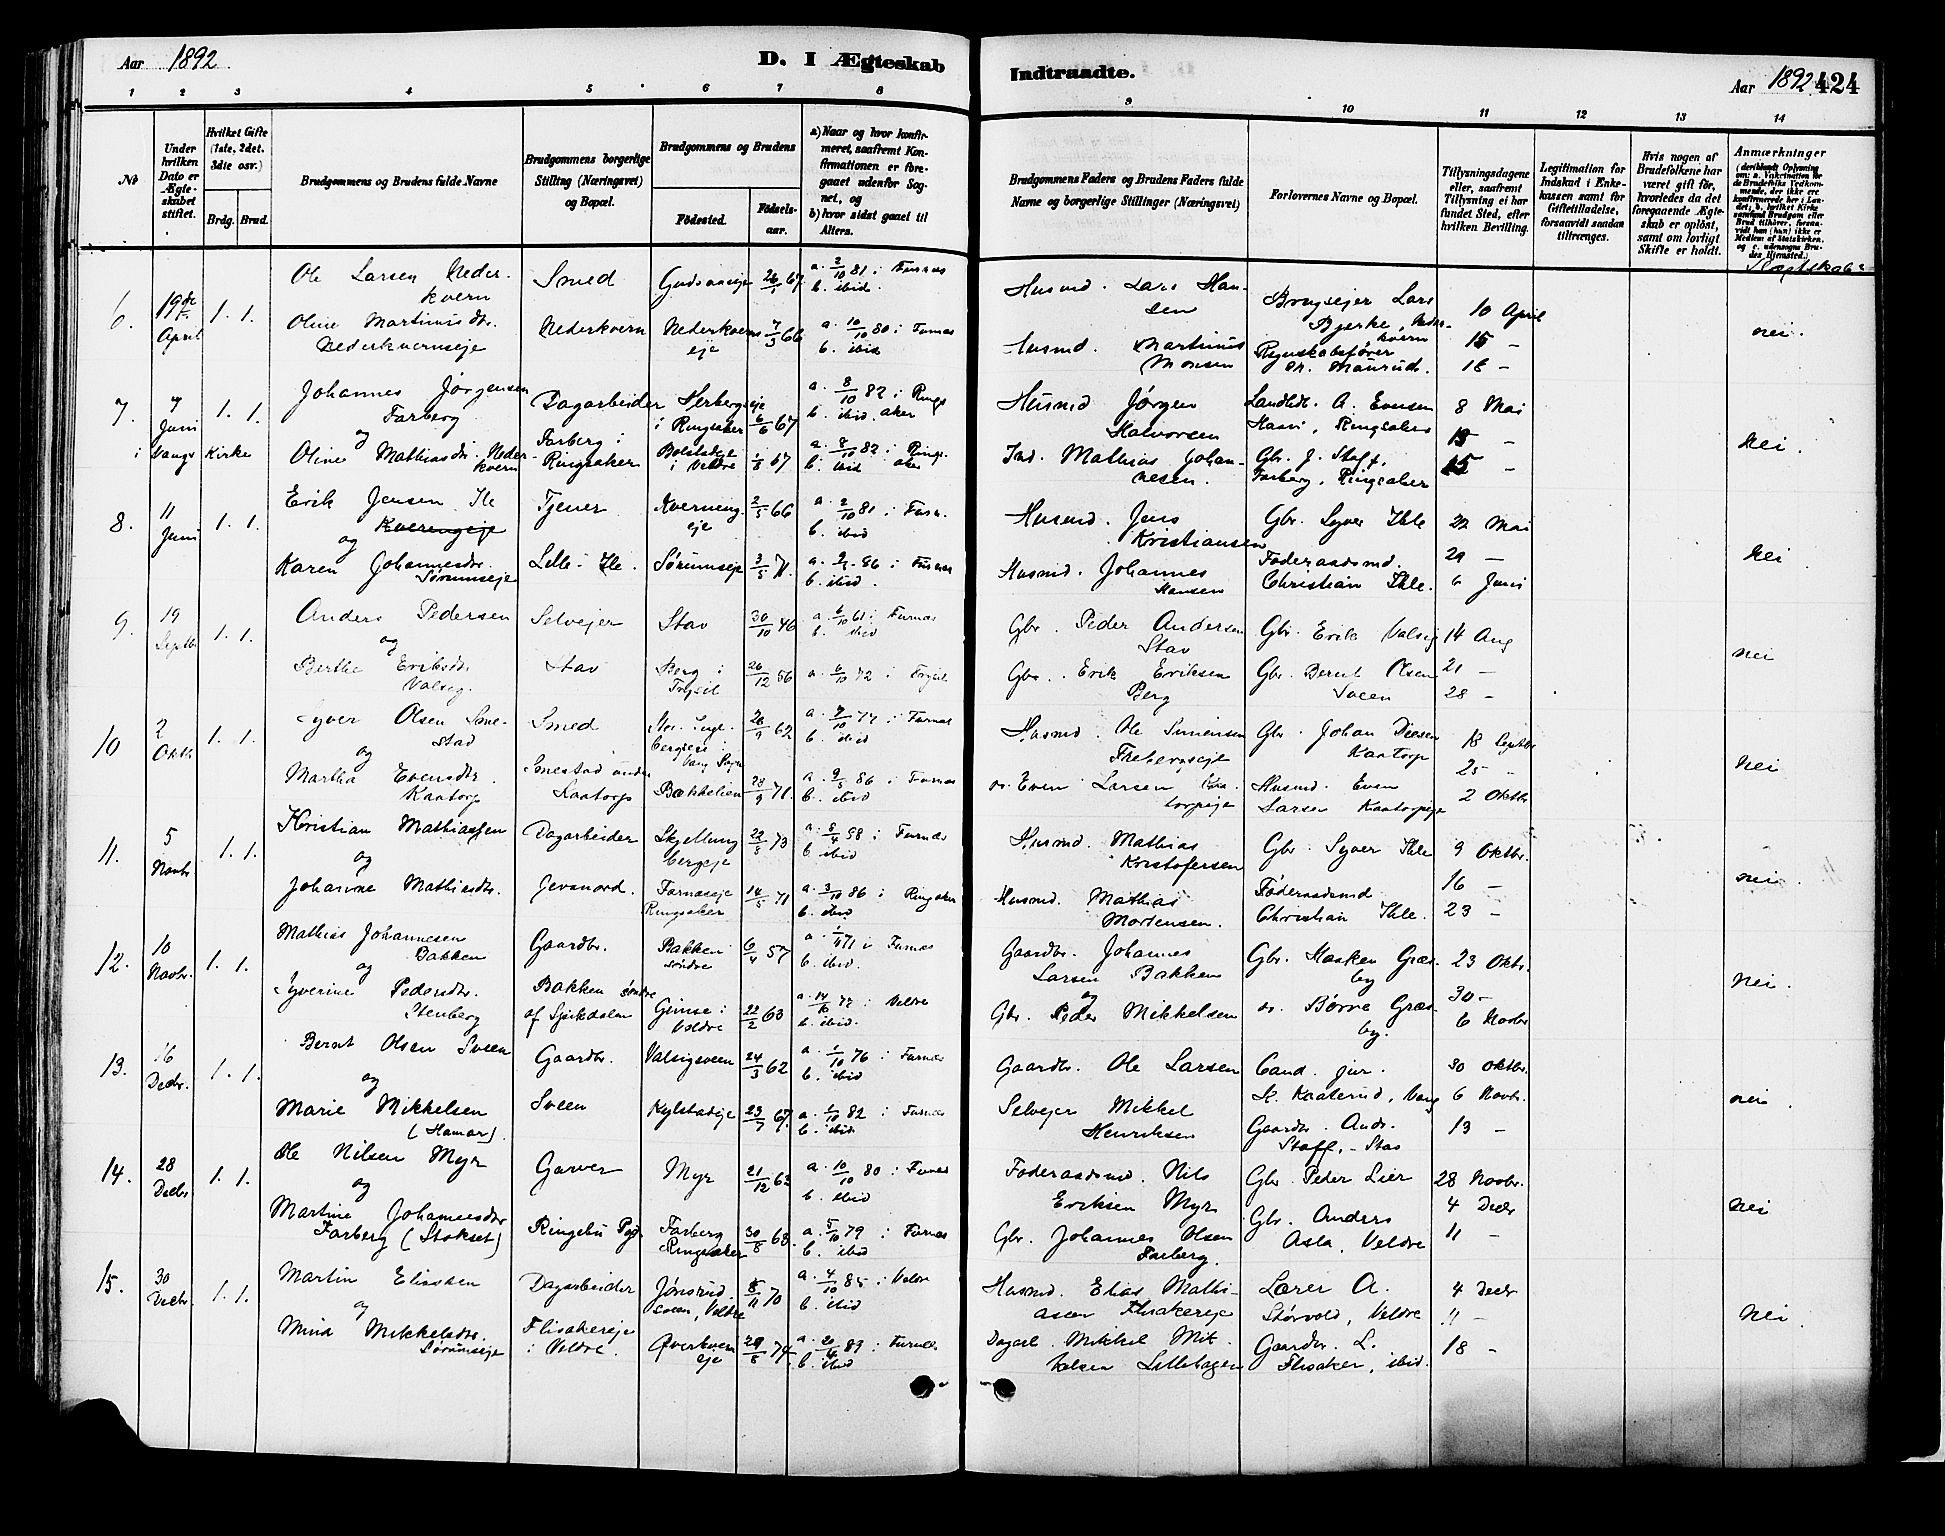 Aar 1892
D. I Ægteskab
Indtraadte.
Aar 1892 424
1 2 3 4 5 6 7 8 9 10 11 12 13 14
No
Under hvilken Dato er Ægteskabet stiftet.
Hvilket Gifte (1ste, 2det, 3die osv.)
Brdg. Brud.
Brudgommens og Brudens fulde Navne
Brudgommens borgerlige Stilling (Næringsvei) og Bopæl.
Brudgommens og Brudens
Fødested.
Fødselsaar.
a) Naar og hvor konfirmeret, saafremt Konfirmationen er foregaaet udenfor Sognet, og
b) hvor sidst gaaet til Alters.
Brudgommens Faders og Brudens Faders fulde Navne og borgerlige Stillinger (Næringsvei)
Forlovernes Navne og Bopæl.
Tillysningsdagene eller, saafremt Tillysning ei har fundet Sted, efter hvilken Bevilling.
Legitimation for Indskud i Enkekassen samt for Giftetilladelse, forsaavidt saadan tiltrænges.
Hvis nogen af Brudefolkene har været gift før, hvorledes da det foregaaende Ægteskab er opløst, samt om lovligt Skifte er holdt.
Anmærkninger
Slægtskab?
6. 19de April 1. 1. Ole Larsen Nederkvern Smed 26/1 67 a. 2/10 81 i Furnæs b. ibid. Husmd. Lars Hansen Brugseier Lars Bjerke, Nederkvern 10 April
Oline Martinusdtr. Nederkvernseje Nederkvern Nederkvernseje 7/3 66 a. 10/10 80 i Furnæs b. ibid Husmd. Martinus Monsen Regnskabsfører 15 - 18 - nei.
7. 7 Juni 1. 1. Johannes Jørgensen Farberg Dagarbeider i Ringsaker 6/6 67 a. 8/10 82 i Ringsaker b. ibid. Husmd Jørgen Halvorsen Landhdl. A. Evensen Ringsaker 8 Mai
i Vangs Kirke og Oline Mathiasdtr. Nederkvern Farberg i Ringsaker i Veldre 1/8 67 a. 8/10 82 i Ringsaker b. ibid Ind. Mathias Johannesen. Gbr. J. Staff, Farberg, Ringsaker 15 - nei.
8. 11 Juni 1. 1. Erik Jensen Ile Kverengeje Tjener Kvernengeje 2/5 66 a. 2/10 81 i Furn. b. ibid Husmd. Jens Kristiansen Gbr. Syver Ihle 22 Mai
og Karen Johannesdtr. Sørumseje Lille-Ile. Sørumseje 3/5 71. b. ibid. Husmd. Johannes Hansen Føderaadsmd. Christian Ihle. 29 - 6 Juni nei
9. 19 Septb. 1. 1. Anders Pedersen Selvejer Stav 30/10 46 a. 6/10 61 i Furnæs b. ibid Gbr. Peder Andersen Stav Gbr. Erik Valsig 14 Aug
og Berthe Eriksdtr. Valsig. Stav Berg i Trysil 26/12 56 a. 6/10 72 i Trysil Gbr. Erik Eriksen Berg Gbr. Bernt Olsen Sveen 21 - 28 - nei
10 2 Oktb. 1. 1. Syver Olsen Smestad Smed 26/9 62 b. ibid Husmd. Ole Simensen Gbr. Johan Kaatorp 18 Septbr.
og Martha Evensdtr. Kaatorp Smestad under Kaatorp Bækkelien 28/9 71. a. 9/5 86 i Furnæs b. ibid. Even Larsen Kaatorpeje Husmd. Even Larsen Kaatorpeje 25 - 2 Oktbr. nei
11. 5 Novbr 1. 1. Kristian Mathiassen Dagarbeider Skjellungbergeje 22/8 73 i Furnæs b. ibid Husmd. Mathias Kristofersen Gbr. Syver Ihle 9 Oktbr.
og Johanne Mathisdtr. Jevanord. Farnæseje Ringsaker 14/5 71 a. 3/10 86 i Ringsaker b. ibid Husmd. Mathias Mortensen. Føderaadsmd Christian Ihle. 16 - 23 - nei.
12. 10 Novbr. 1. 1. Mathias Johannesen Bakken Gaardbr. Bakken søndre 6/4 57 i Furnæs b. ibid. Gaardbr. Johannes Larsen Bakken Gbr. Haaken Græsby 23 Oktbr.
og Syverine Pedersdtr. Stenberg Bakken søndre af Gimse i Veldre 22/2 63 i Veldre b. ibid. og Gbr. Peder Mikkelsen Børre Græsby. 30 - 6 Novbr nei.
13. 16 Decbr. 1. 1. Bernt Olsen Sveen Gaardbr. Valsigsveen 24/3 62 a. 1/10 76 i Furnæs b. ibid. Gaardbr. Ole Larsen Cand. jur. 30 Oktbr.
og Marie Mikkelsen (Hamar). Sveen Kylstadeje 23/7 67. a. 1/10 82 i Furnæs b. ibid Selvejer Mikkel Henriksen Kaaterud, Vang Gaardbr. Andr. Staff, - Stav 6 Novbr. 13 - nei
14. 28 Decbr 1. 1. Ole Nilsen Myr Garver Myr 21/12 63 a. 10/10 80 i Furnæs b. ibid Føderaadsmd. Nils Eriksen Myr Gbr. Peder Lier 28 Novbr.
og Martine Johannesdtr. Farberg (Stokset) Ringebu Farberg Ringsaker 30/8 63. a. 5/10 79 i Furnæs b. ibid. Gbr. Johannes Olsen Farberg. Gbr. Anders Asla, Veldre 4 Decbr 11 - nei
15. 30 Decbr. 1. 1. Martin Eliassen Dagarbeider Jønsrudsveen, Veldre 8/11 70 a. 4/10 85 i Veldre b. ibid Husmd. Elias Mathiasen Flisakereje Lærer A. Størvold, Veldre 4 Decbr
og Mina Mikkelsdtr. Sørumseje Flisakereje i Veldre. Øverkverneje 29/8 74. a. 20/4 89 i Furnæs b. ibid Dagarb. Mikkel Mikkelsen Lillehagen Gaardbr. L. Flisaker, ibid. 11 - 18 - nei.